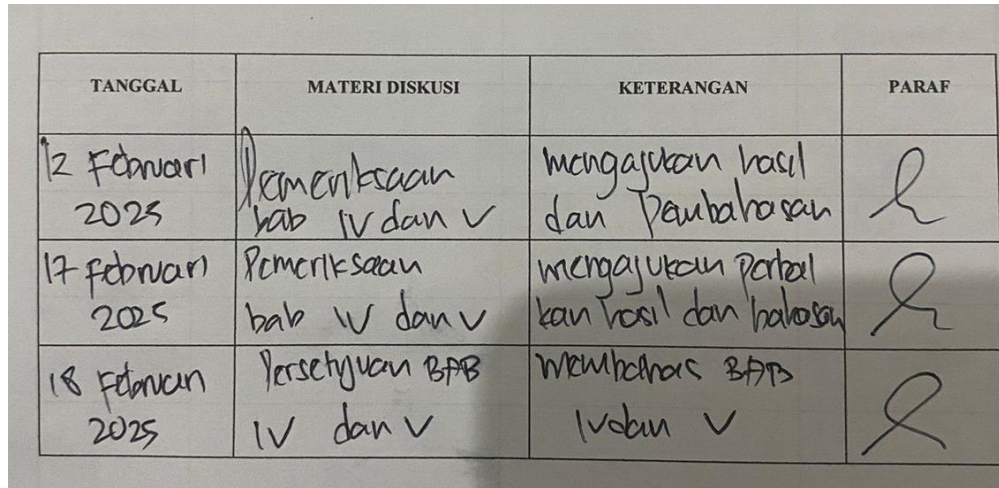 TANGGAL MATERI DISKUSI KETERANGAN PARAF
12 Februari
2025
Pemeriksaan
bab IV dan V
mengajukan hasil
dan Pembahasan
17 Februari
2025
Pemeriksaan
bab IV dan V
mengajukan Perbai
kan hasil dan bahasan
18 Februari
2025
Persetujuan BAB
IV dan V
Membahas BAB
IV dan V